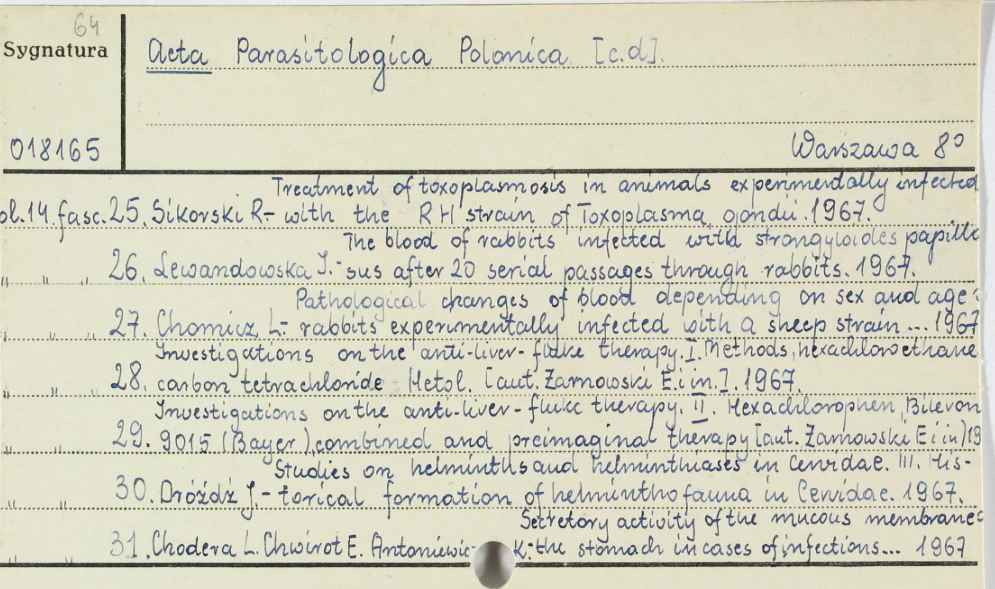 64
Sygnatura
Acta Parasitologica Polonica [c.d].
018165
Warszawa 8°
Treatment of toxoplasmosis in animals experimentally infected
ol.14.fasc.25. Sikorski R.- with the RH strain of Toxoplasma gondii. 1967.
The blood of rabbits infected with strongyloides papillo
" " " 26. Lewandowska J.- sus after 20 serial passages through rabbits. 1967.
Pathological changes of blood depending on sex and age-
" " " 27. Chomicz L.- rabbits experimentally infected with a sheep strain... 1967
Investigations on the anti-liver-fluke therapy. I. Methods, hexachloroethane
" " " 28. carbon tetrachloride Hetol. [aut. Żarnowski E. i in.]. 1967.
Investigations on the anti-liver-fluke therapy. II. Hexachlorophen, Bilevon
" " " 29. 9015 (Bayer), combined and preimaginal therapy [aut. Żarnowski E i in) 19
Studies on helminths and helminthiases in Cervidae. III. His-
" " " 30. Dróżdż J.- torical formation of helminthofauna in Cervidae. 1967.
Secretory activity of the mucous membrane
" " " 31. Chodera L. Chwirot E. Antoniewic K.- the stomach in cases of infections... 1967